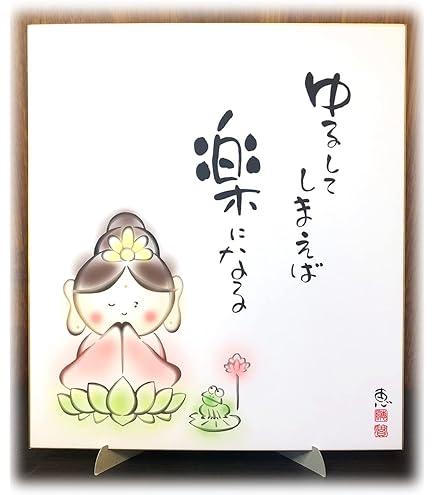 ゆるして
しまえば
楽になる
恵